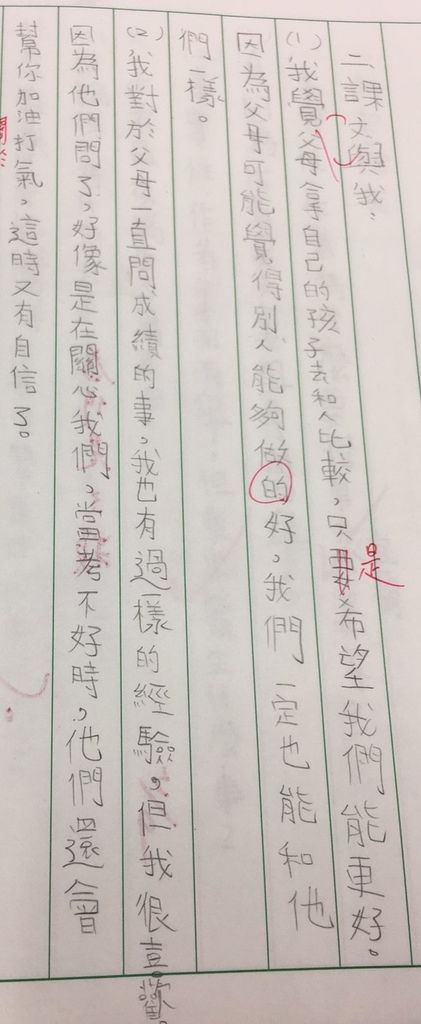 二、課文與我：
(1)我覺父母拿自己的孩子去和人比較，只要希望我們能更好。
是
因為父母可能覺得別人能夠做的好，我們一定也能和他
們一樣。
(2)我對於父母一直問成績的事，我也有過一樣的經驗，但我很喜歡，
因為他們問了，好像是在關心我們，當考不好時，他們還會
幫你加油打氣，這時又有自信了。